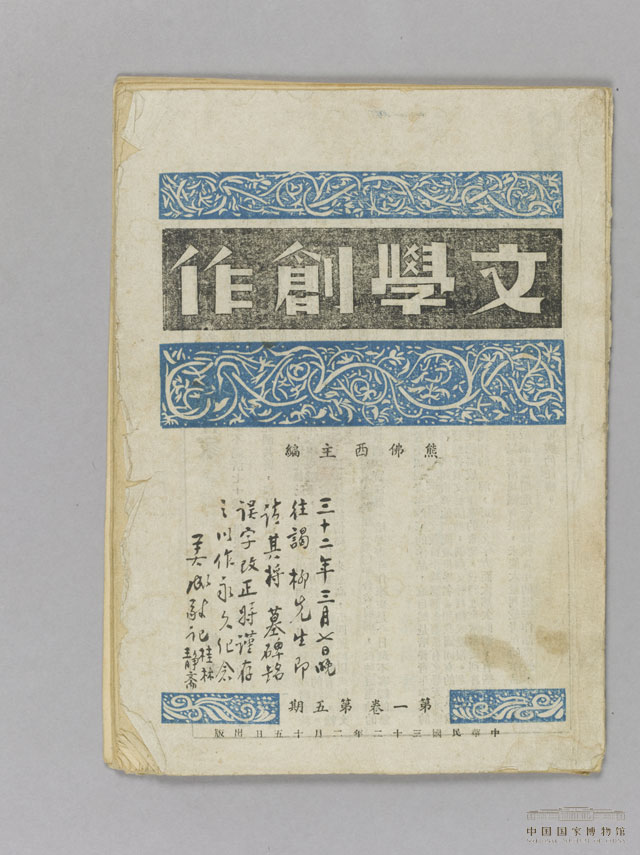 文學創作
熊佛西主編
三十二年三月七日晚
往謁柳先生即
請其將墓碑銘
誤字改正將謹存
之以作永久紀念
記桂林
靜齋
第一卷第五期
中華民國三十二年二月十五日出版
中国国家博物馆
NATIONAL MUSEUM OF CHINA